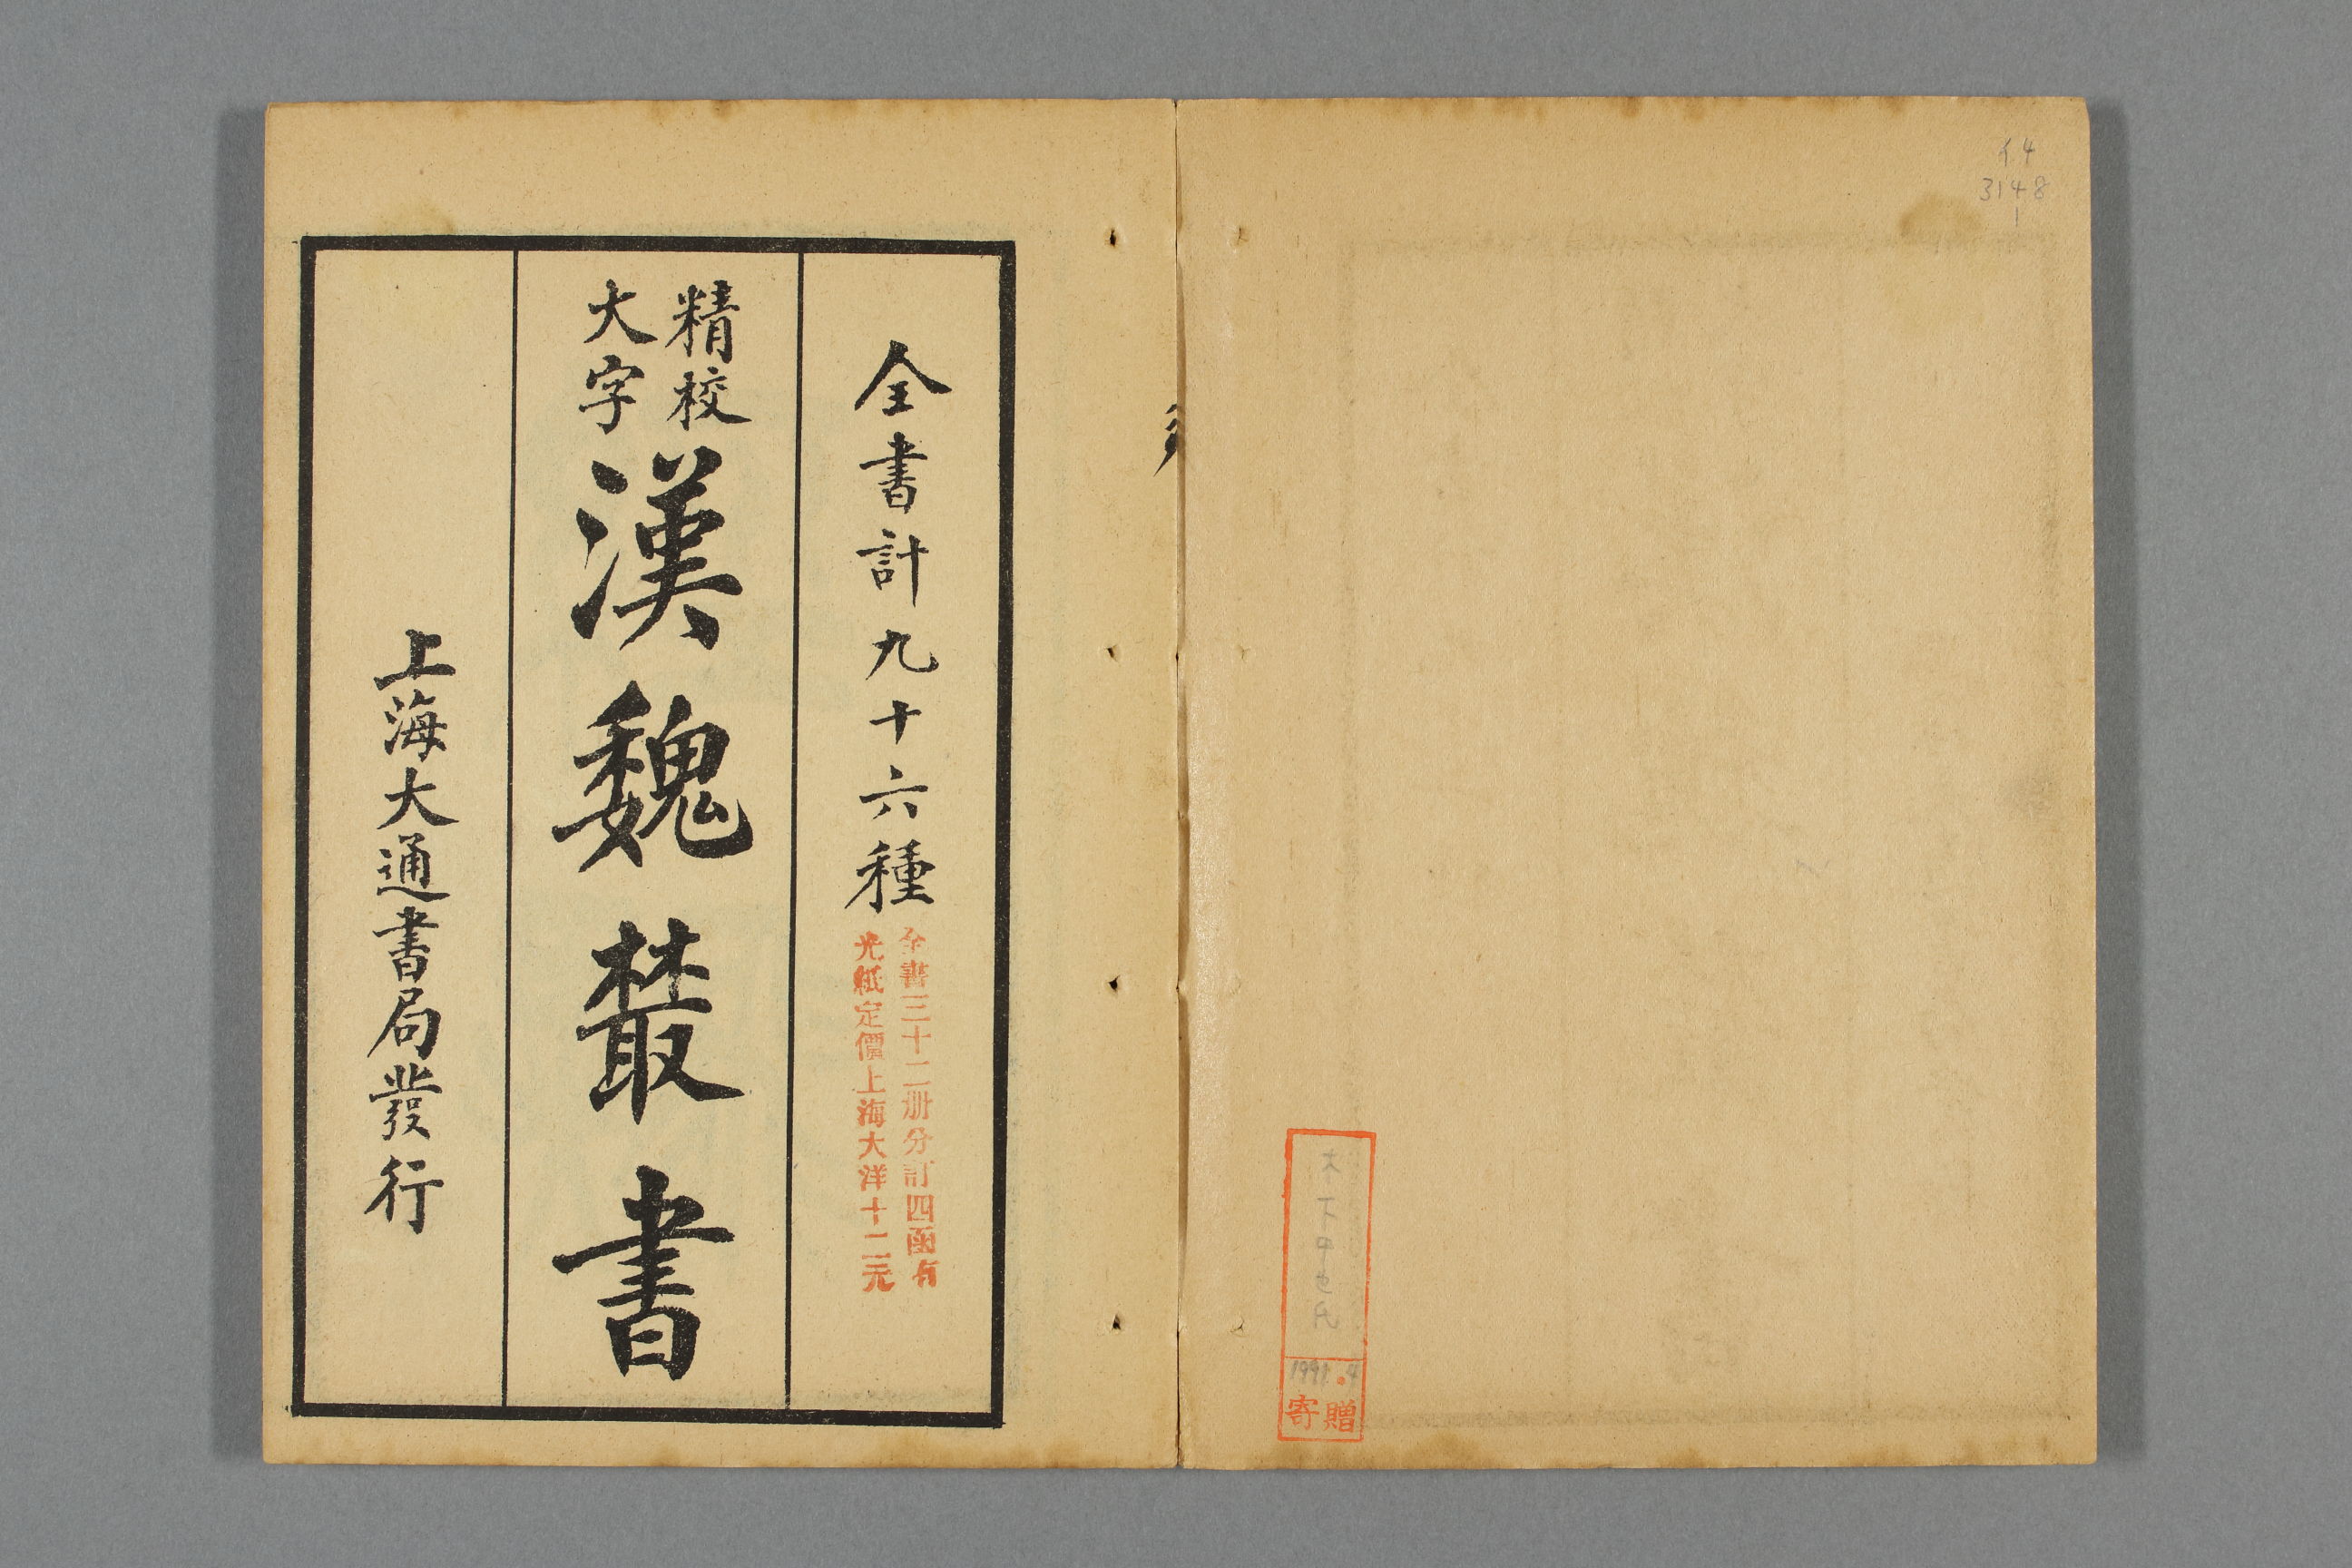 イ4
3148
1
木下中也氏
1991.9
寄贈
全書計九十六種
全書三十二册分訂四函有
光紙定價上海大洋十二元
精校
大字
漢魏叢書
上海大通書局發行